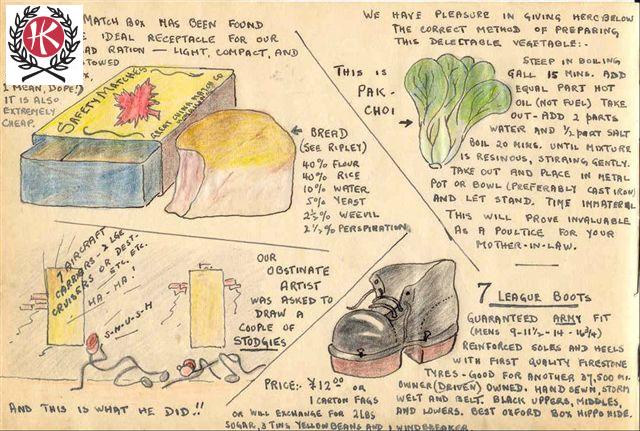 HK
MATCH BOX HAS BEEN FOUND
IDEAL RECEPTACLE FOR OUR
AD RATION — LIGHT, COMPACT, AND
TOWED
I MEAN, DOPE?)
IT IS ALSO
EXTREMELY
CHEAP.
SAFETY MATCHES
GREAT CHINA MATCH CO
BREAD
(SEE RIPLEY)
40% FLOUR
40% RICE
10% WATER
5% YEAST
2½% WEEVIL
2½% PERSPIRATION
WE HAVE PLEASURE IN GIVING HEREBELOW
THE CORRECT METHOD OF PREPARING
THIS DELECTABLE VEGETABLE:-
THIS IS
PAK-
CHOI
STEEP IN BOILING
GALL 15 MINS. ADD
EQUAL PART HOT
OIL (NOT FUEL) TAKE
OUT - ADD 2 PARTS
WATER AND ½ PART SALT
BOIL 20 MINS. UNTIL MIXTURE
IS RESINOUS, STIRAING GENTLY.
TAKE OUT AND PLACE IN METAL
POT OR BOWL (PREFERABLY CAST IRON)
AND LET STAND. TIME IMMATERIAL
THIS WILL PROVE INVALUABLE
AS A POULTICE FOR YOUR
MOTHER-IN-LAW.
7 AIRCRAFT
CARRIERS - 2 LGE
CRUISERS OR DEST-
ETC. ETC.
HA - HA!
S-H-U-S-H
OUR
OBSTINATE
ARTIST
WAS ASKED TO
DRAW A
COUPLE OF
STODGIES
AND THIS IS WHAT HE DID.!!
7 LEAGUE BOOTS
GUARANTEED ARMY FIT
(MENS 9-11½ - 14 - 16¾)
REINFORCED SOLES AND HEELS
WITH FIRST QUALITY FIRESTONE
TYRES - GOOD FOR ANOTHER 37,500 MI.
OWNER (DRIVEN) OWNED. HAND SEWN, STORM
WELT AND BELT. BLACK UPPERS, MIDDLES,
AND LOWERS. BEST OXFORD BOX HIPPO HIDE.
PRICE:- ¥12.00 OR
1 CARTON FAGS
OR WILL EXCHANGE FOR 2 LBS
SUGAR, 3 TINS YELLOW BEANS AND 1 WINDBREAKER